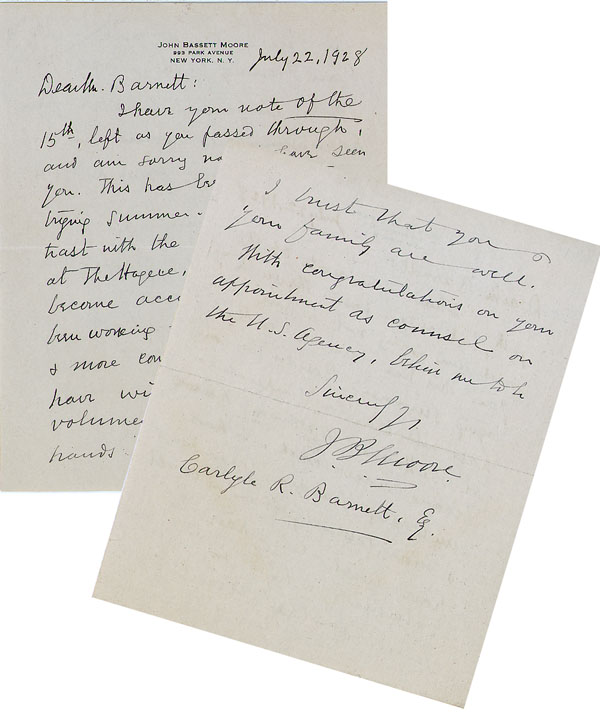 JOHN BASSETT MOORE
993 PARK AVENUE
NEW YORK, N. Y.
July 22, 1928
Dear Mr. Barnett:
I have your note of the
15th, left as you passed through,
and am sorry have seen
you. This has
trying summer.
trast with the
at The Hague,
become
been working
& more
have
volume
hands
I trust that you &
your family are well.
With congratulations on your
appointment as counsel on
the U.S. Agency, believe me to be
Sincerely
J. B. Moore.
Carlyle R. Barnett, Esq.